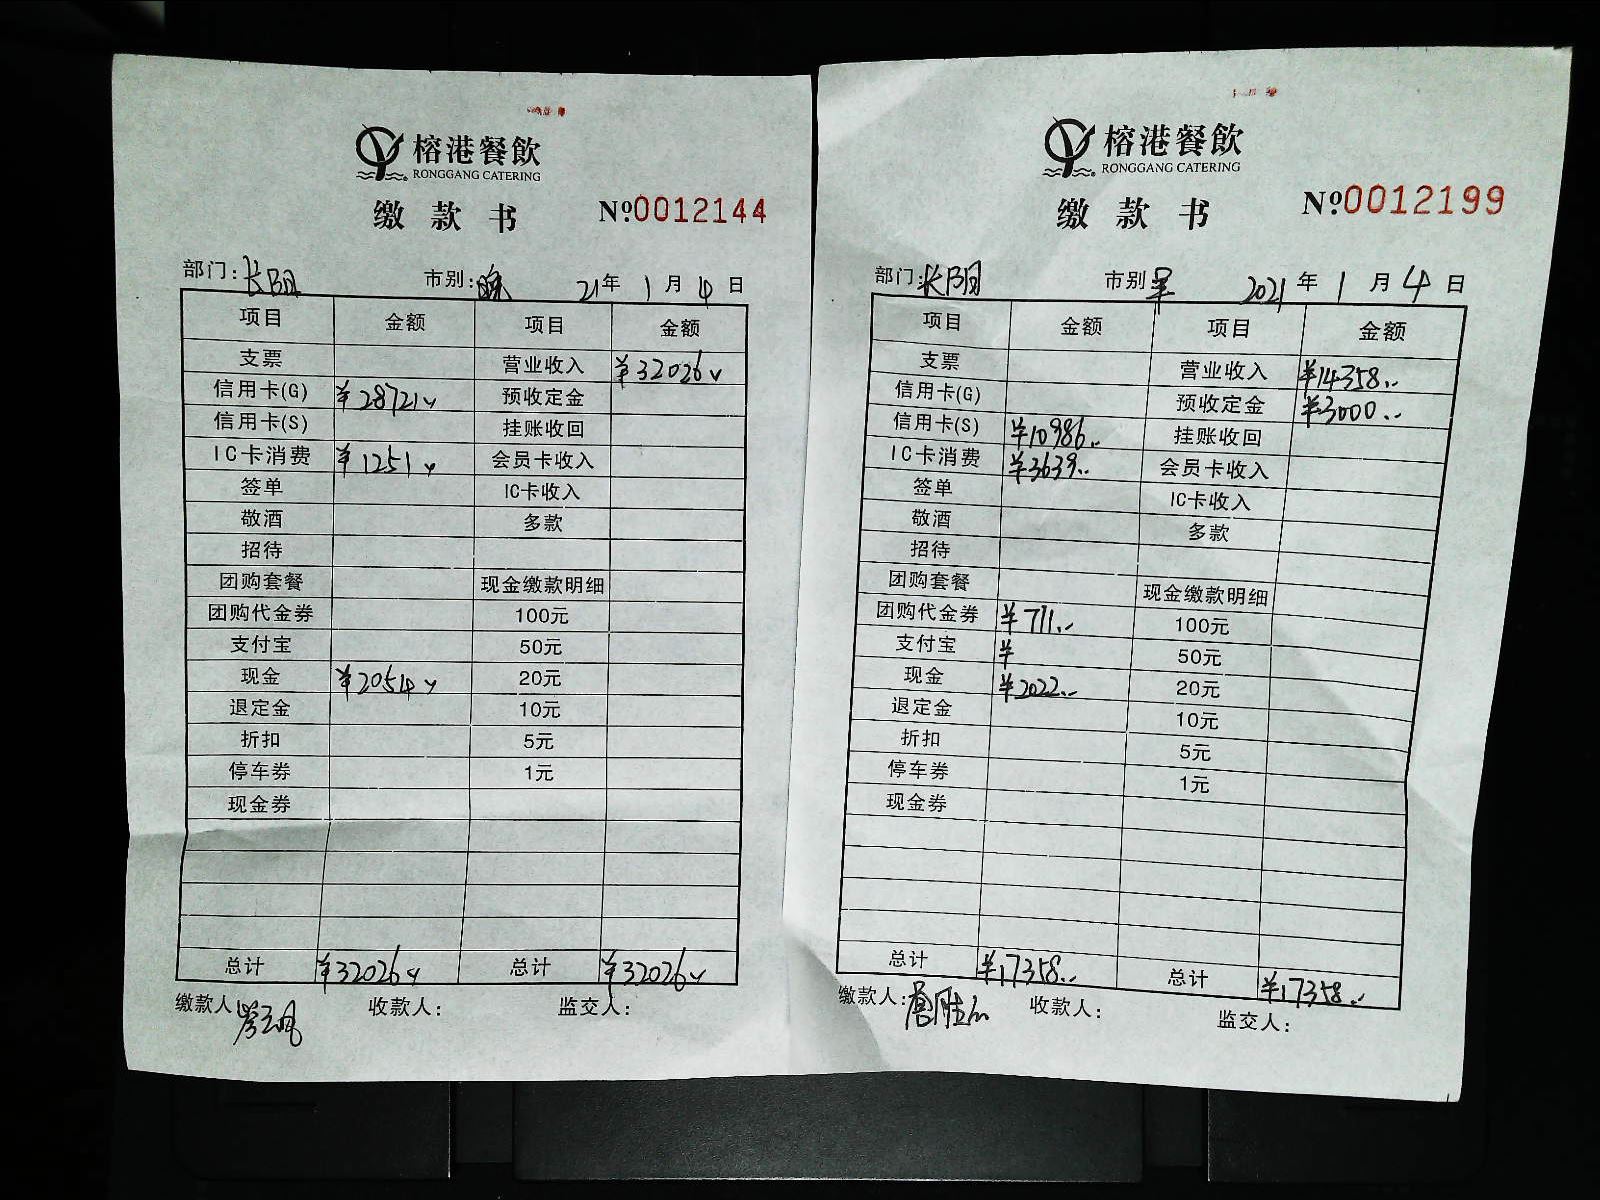 榕港餐飲
RONGGANG CATERING
缴款书
№0012144
部门:长阳 市别:晚 21年1月4日
项目 金额 项目 金额
支票 营业收入 ¥32026
信用卡(G) ¥28721 预收定金
信用卡(S) 挂账收回
IC卡消费 ¥1251 会员卡收入
签单 IC卡收入
敬酒 多款
招待
团购套餐 现金缴款明细
团购代金券 100元
支付宝 50元
现金 ¥2054 20元
退定金 10元
折扣 5元
停车券 1元
现金券
总计 ¥32026 总计 ¥32026
缴款人: 收款人: 监交人:
榕港餐飲
RONGGANG CATERING
缴款书
№0012199
部门:长阳 市别:早 2021年1月4日
项目 金额 项目 金额
支票 营业收入 ¥14358
信用卡(G) 预收定金 ¥3000
信用卡(S) ¥10986 挂账收回
IC卡消费 ¥3639 会员卡收入
签单 IC卡收入
敬酒 多款
招待
团购套餐 现金缴款明细
团购代金券 ¥711 100元
支付宝 ¥ 50元
现金 ¥2022 20元
退定金 10元
折扣 5元
停车券 1元
现金券
总计 ¥17358 总计 ¥17358
缴款人: 收款人: 监交人: